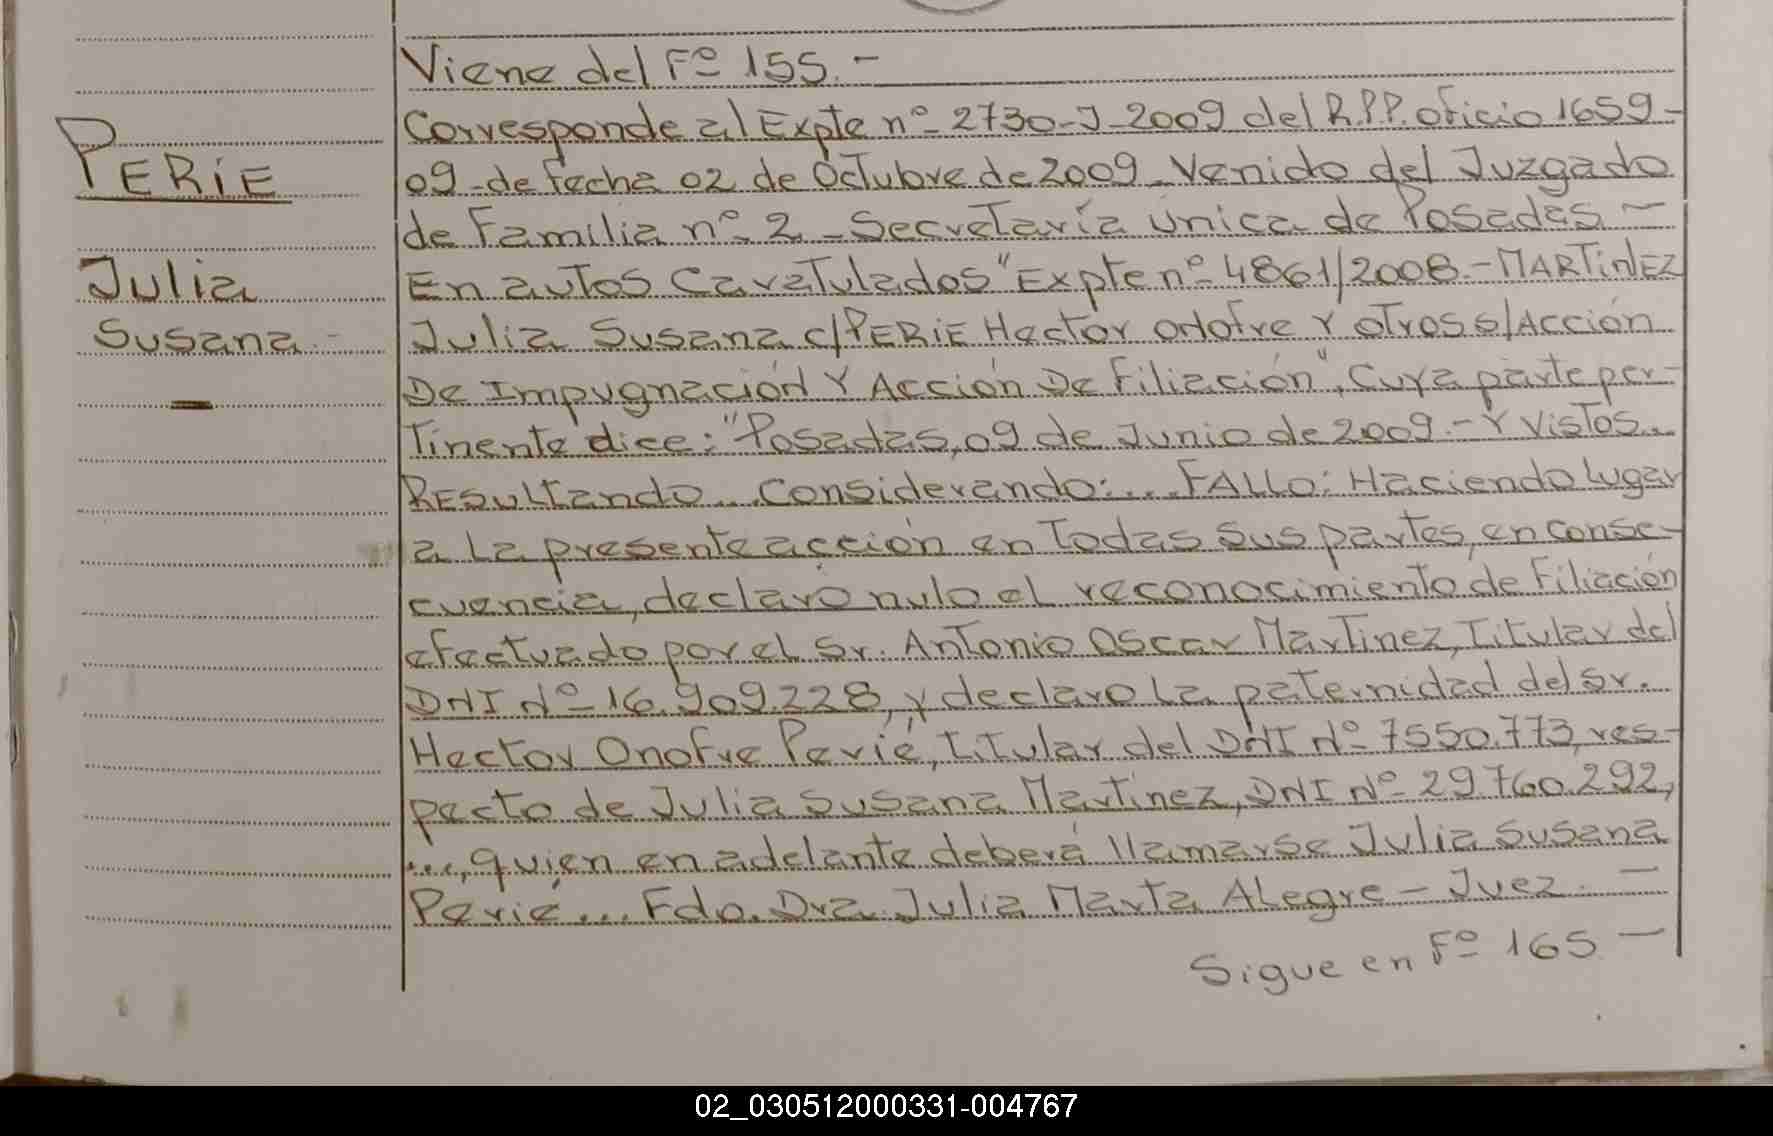 Viene del Fº 155.-
PERIE
Julia
Susana -
—
Corresponde al Expte nº- 2730-J-2009 del R.P.P. oficio 1659-
09-de fecha 02 de Octubre de 2009- Venido del Juzgado
de Familia nº- 2 - Secretaría única de Posadas. -
En autos caratulados "Expte nº- 4861/2008.- MARTINEZ
Julia Susana c/PERIE Hector Onofre Y otros s/Acción
De Impugnación Y Acción De Filiación", Cuya parte per-
tinente dice: "Posadas, 09 de Junio de 2009.- Y Vistos...
RESultando... Considerando:... FALLO: Haciendo lugar
a la presente acción en todas sus partes, en conse-
cuencia, declaro nulo el reconocimiento de Filiación
efectuado por el Sr. Antonio Oscar Martinez, Titular del
DNI Nº- 16.909.228, y declaro la paternidad del Sr.
Hector Onofre Perié, Titular del DNI Nº- 7550.773, res-
pecto de Julia Susana Martinez, DNI Nº- 29.760.292,
..., quien en adelante deberá llamarse Julia Susana
Perié... Fdo. Dra. Julia Marta Alegre - Juez. -
Sigue en Fº 165 -
02_030512000331-004767